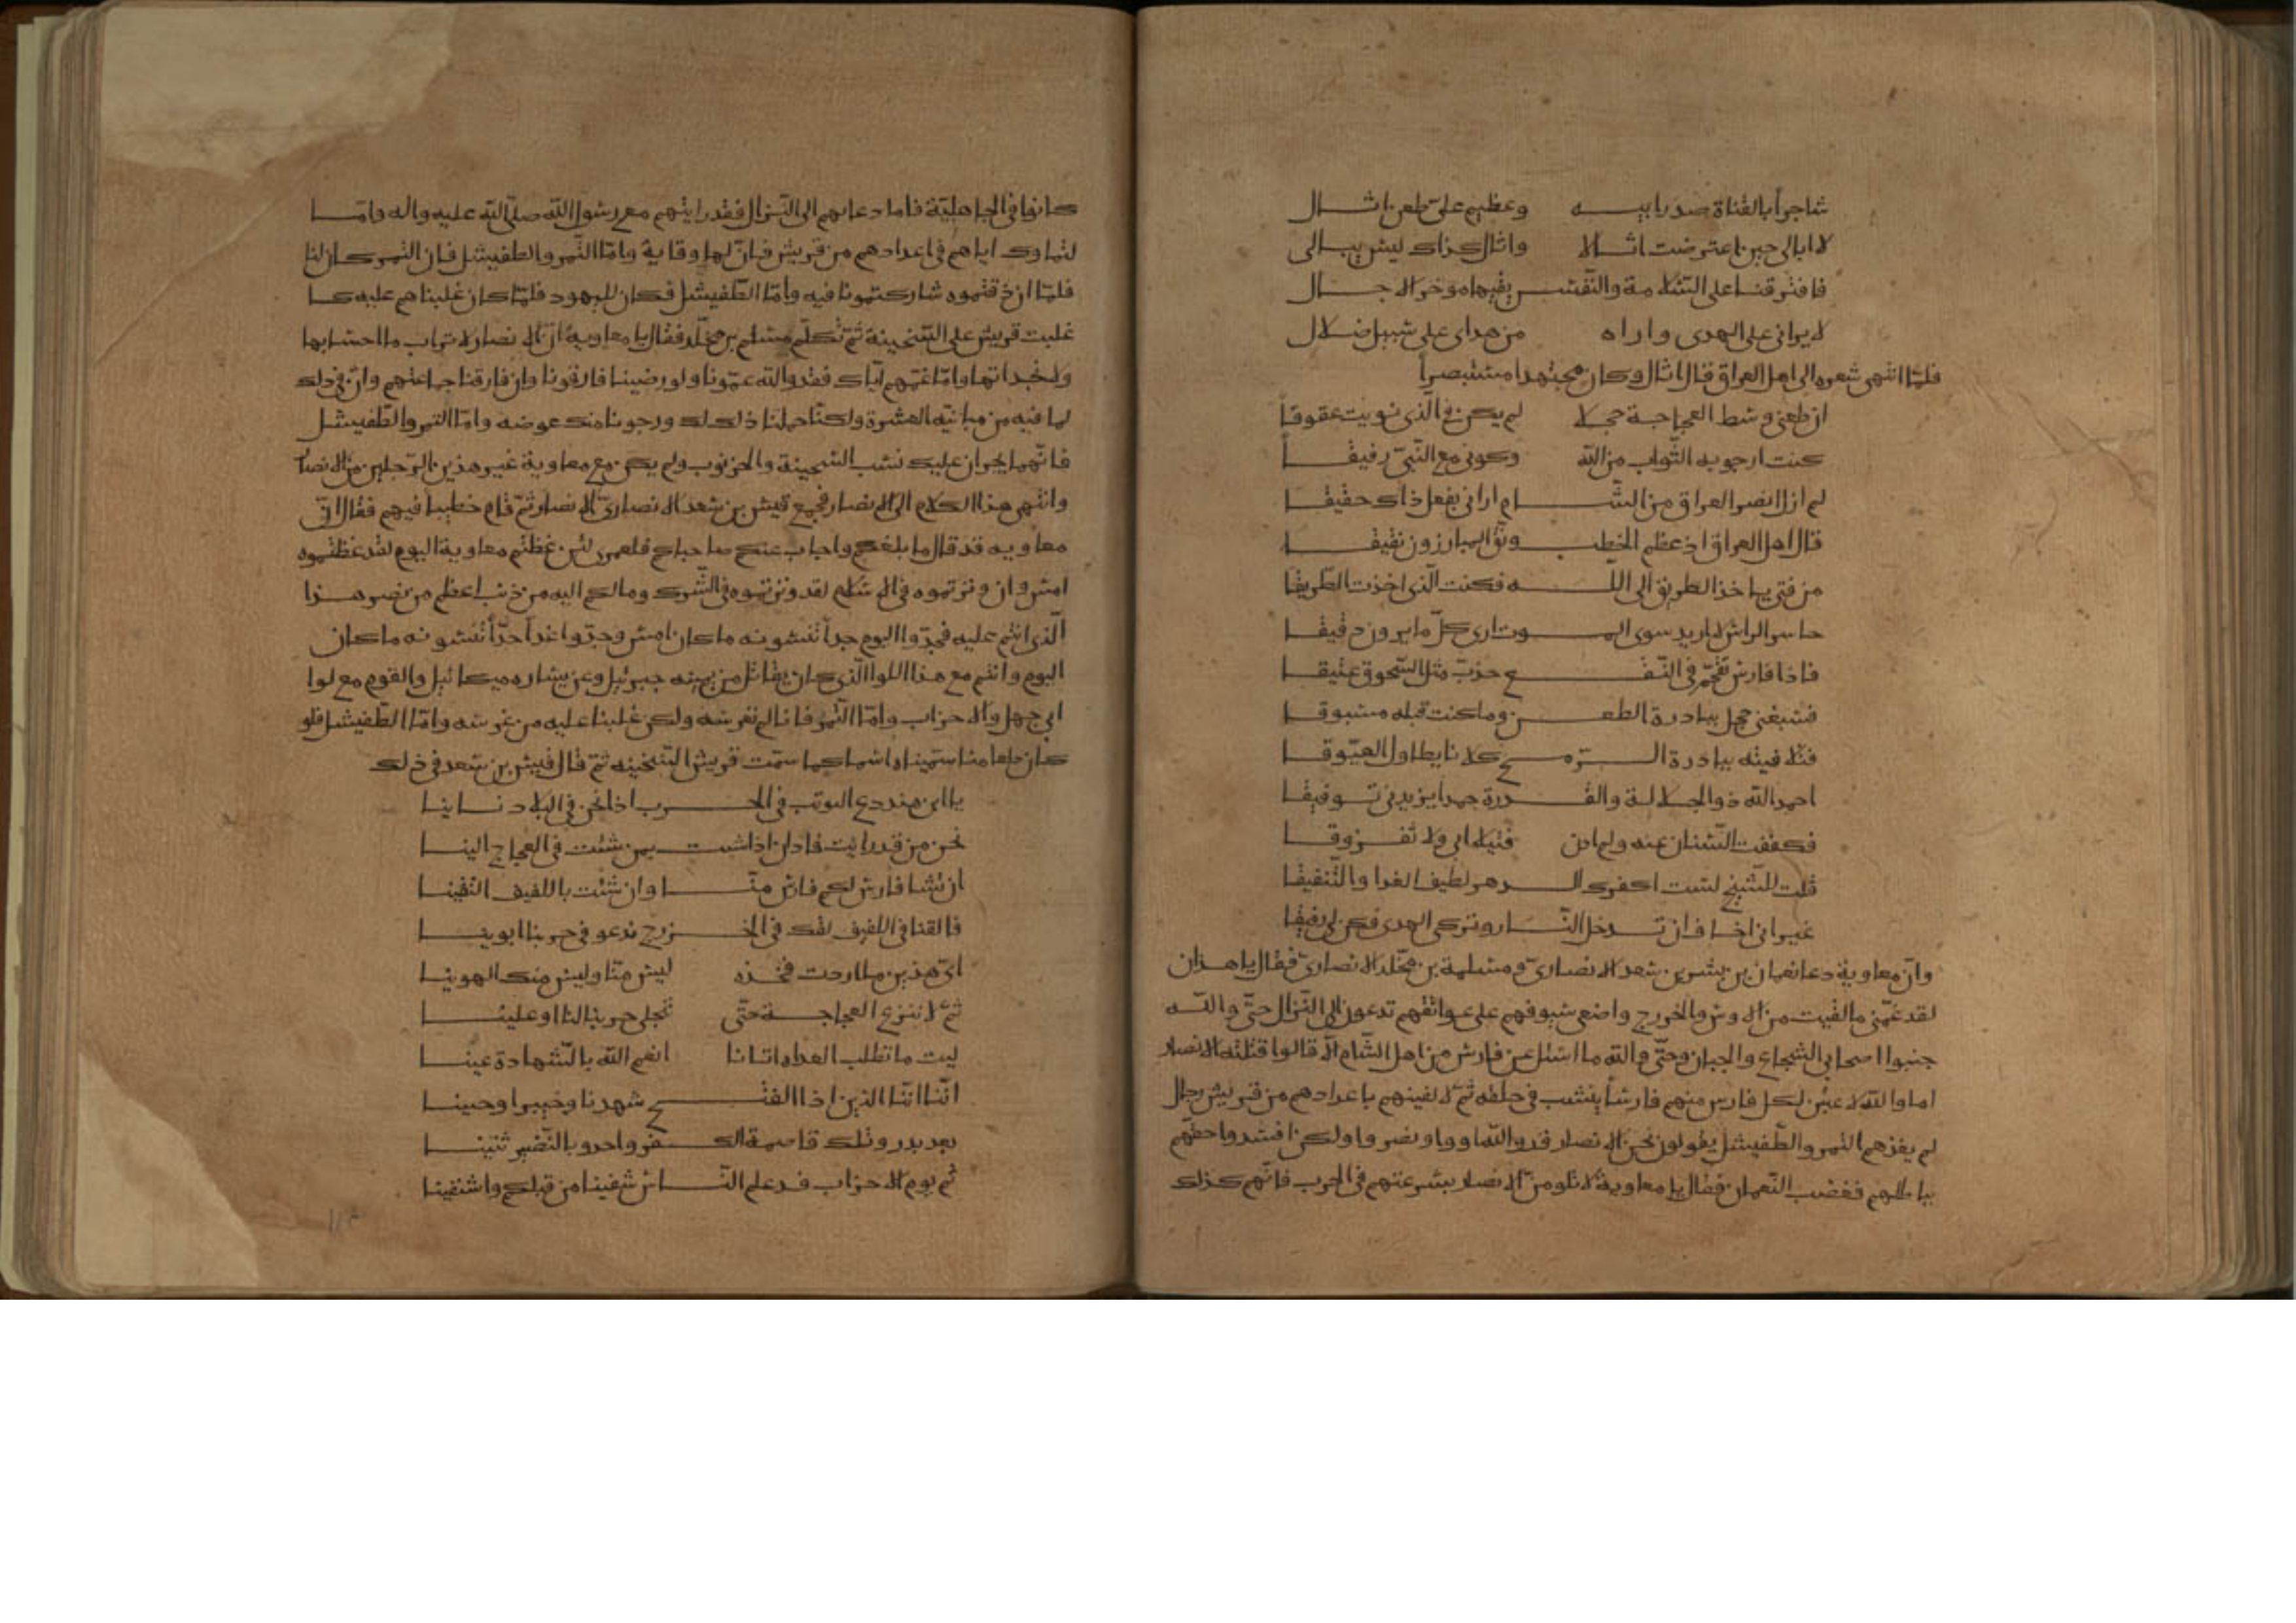 شاجرا بالقناة صدر ابيه وعظيم علي طعن اثال
لا ابالي حين اعترضت اثالا واثال كذاك ليس يبالي
فافترقنا على السلامة والنفس يقيها موخر الاجال
لا يراني على الهدى واراه من هداي على سبيل ضلال
فلما انتهى شعره الى اهل العراق قال اثال وكان مجتهدا مستبصرا
ان طعني وسط العجاجة حجلا لم يكن في الذي نويت عقوقا
كنت ارجو به الثواب من الله وكوني مع النبي رفيقا
لم ازل انصر العراق من الشام اراني بفعل ذاك حقيقا
قال اهل العراق اذ عظم الخطب ونق المبارزون نقيقا
من فتى ياخذ الطريق الى الله فكنت الذي اخذت الطريقا
حاسر الراس لا اريد سوى الموت ارى كل ما يرون دقيقا
فاذا فارس تقحم في النقع حدب مثل السحوق عتيقا
فسبغني حجل ببادرة الطعن وما كنت قبله مسبوقا
فتلافيته ببادرة الرمح كلانا يطاول العيوقا
احمد الله ذو الجلالة والقدرة حمدا يزيدني توفيقا
فكففت السنان عنه ولم ادن فتيلا ابي ولا تفروقا
قلت للشيخ لست اكفرك الدهر لطيف الغدا والتنفيقا
غير اني اخاف ان تدخل النار وتركي الهدى فكن لي رفيقا
وان معاوية دعا نعمان بن بشر بن سعد الانصاري ومسلمة بن مخلد الانصاري فقال يا هذان
لقد غمني ما لقيت من الاوس والخزرج واضعي سيوفهم على عواتقهم تدعون الى النزال حتى والله
جبنوا اصحابي الشجاع والجبان وحتى والله ما اسئل عن فارس من اهل الشام الا قالوا قتلته الانصار
اما والله لاعبئن لكل فارس منهم فارسا ينشب في حلقه ثم لالقينهم باعدادهم من قريش رجال
لم يغذهم التمر والطفيشل يقولون نحن الانصار قد والله اووا ونصروا ولكن افسدوا حقهم
بباطلهم فغضب النعمان فقال يا معاوية لا تلومن الانصار بسرعتهم في الحرب فانهم كذلك
كانوا في الجاهلية فاما دعاهم الى النزال فقد رايتهم مع رسول الله صلى الله عليه واله واما
لقاوك اياهم في اعدادهم من قريش فان لها وقاية واما التمر والطفيشل فان التمر كان لنا
فلما ان ذقتموه شاركتمونا فيه واما الطفيشل فكان لليهود فلما كان غلبناهم عليه كما
غلبت قريش على السخينة ثم تكلم مسلم بن مخلد فقال يا معاوية ان الانصار لا تراب ما احسابها
ولا نجداتها واما غمهم اياك فقد والله غمونا ولو رضينا فارقونا وان فارقنا جماعتهم وان في ذلك
لما فيه من مباينة العشرة ولكنا حملنا ذلك لك ورجونا منك عوضه واما التمر والطفيشل
فانهما يجران عليك نسب السخينة والخرنوب ولم يكن مع معاوية غير هذين الرجلين من الانصار
وانتهى هذا الكلام الى الانصار فجمع قيس بن سعد الانصاري الانصار ثم قام خطيبا فيهم فقال ان
معاويه قد قال ما بلغكم واجاب عنكم صاحباكم فلعمري لئن غظتم معاوية اليوم لقد غظتموه
امس وان وترتموه في الاسلام لقد وترتموه في الشرك وما لكم اليه من ذنب اعظم من نصر هذا
الذي انتم عليه فجدوا اليوم جدا تنسونه ما كان امس وجدوا غدا جدا تنسونه ما كان
اليوم وانتم مع هذا اللوا الذي كان يقاتل من يمينه جبرئيل وعن يساره ميكائيل والقوم مع لوا
ابي جهل والاحزاب واما التمر فانا لم نغرسه ولكن غلبنا عليه من غرسه واما الطفيشل فلو
كان طعامنا سميناه اسما كما سمت قريش السخينه ثم قال قيس بن سعد في ذلك
يا ابن هند دع التوثب في الحرب اذا نحن في البلاد نساينا
نحن من قد رايت فادن اذا شيت بمن شئت في العجاج الينا
ان نشا فارس لكم فارس منا وان شئت باللفيف التقينا
فالقنا في اللفيف نلقك في الخزرج ندعو في حربنا ابوينا
اي هذين ما اردت فخذه ليس منا وليس منك الهوينا
ثم لا ننزع العجاجة حتى تنجلي حربنا لنا او علينا
ليت ما تطلب الغداه اتانا انعم الله بالشهادة عينا
اننا اننا الذين اذا الفتح شهدنا وخيبرا وحنينا
بعد بدر وتلك قاصمة الكفر واحد وبالنضير ثنينا
ثم يوم الاحزاب قد علم الناس شفينا من قبلكم واشتفينا